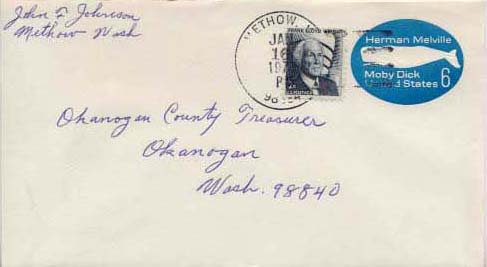 John F Johnson
Methow Wash
METHOW, W
JA
16
197
P
FRANK LLOYD WRIGHT
Herman Melville
Moby Dick
United States 6
Okanogan County Treasurer
Okanogan
Wash. 98840